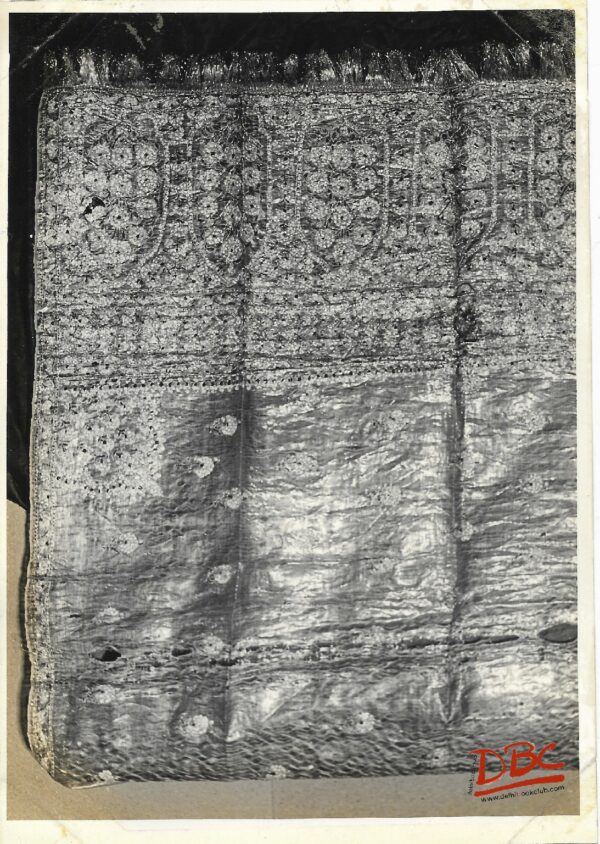 DBC
www.delhibookclub.com